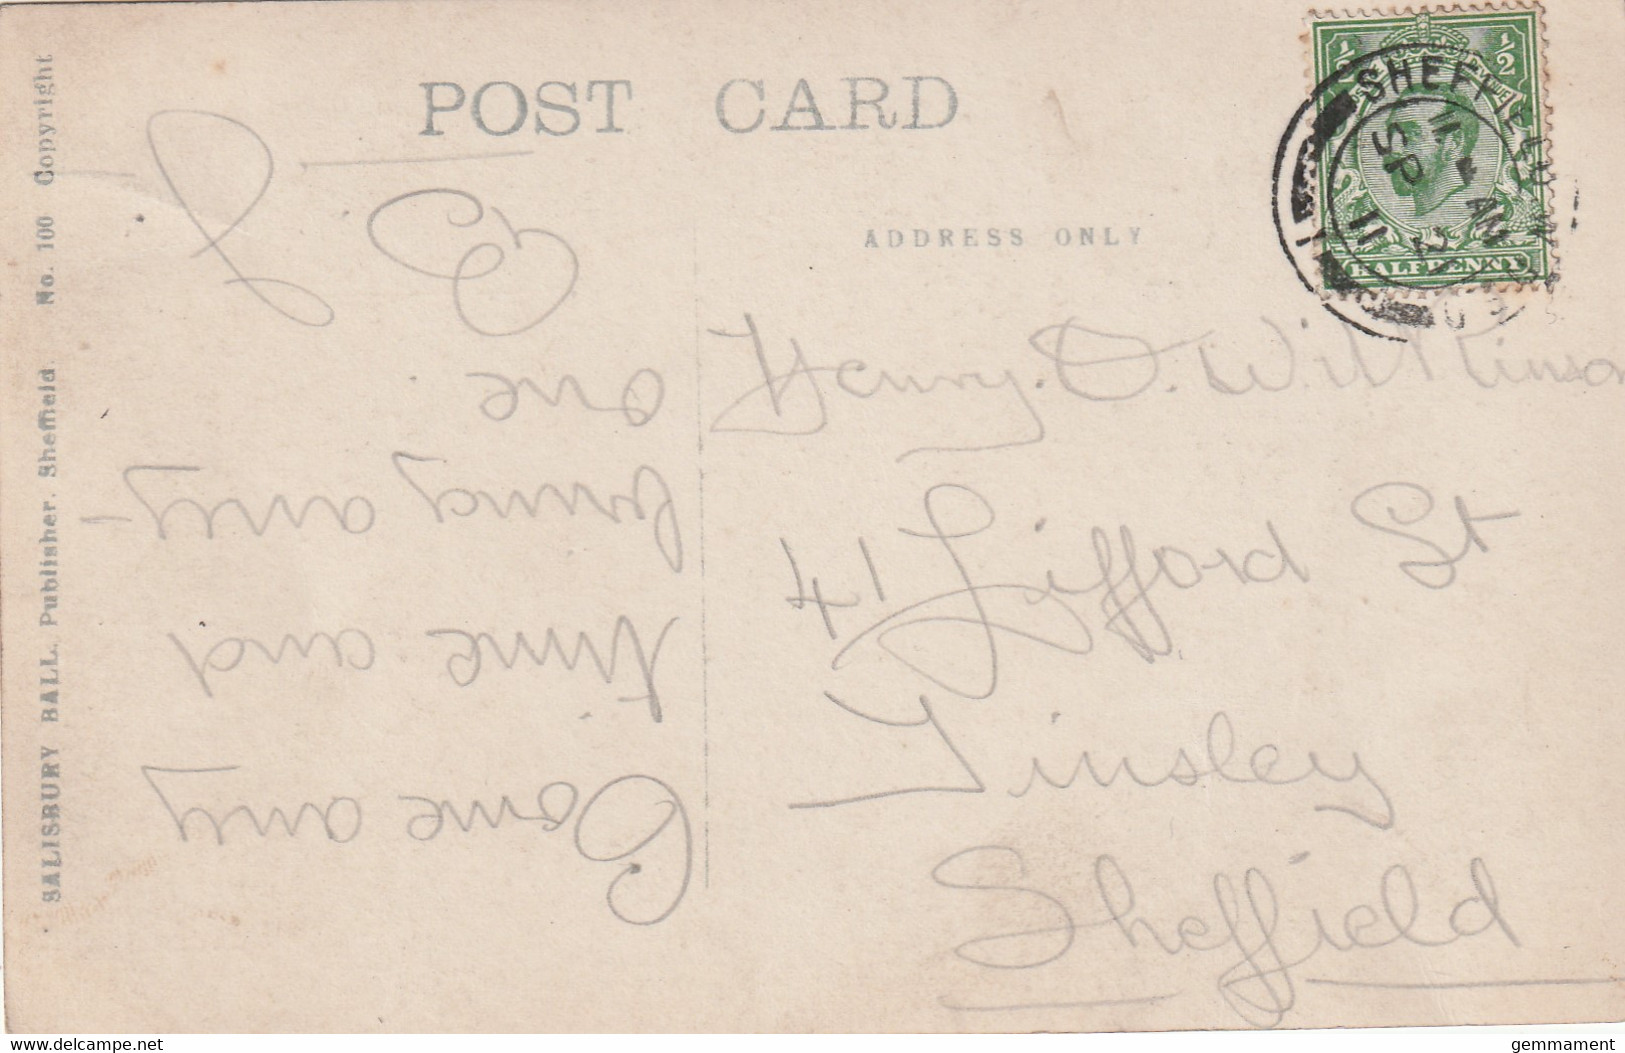 POST CARD
ADDRESS ONLY
SALISBURY BALL, Publisher, Sheffield. No. 100 Copyright
Come any
time and
bring any-
one
Henry. O. Wilkinson
41 Lifford St
Tinsley
Sheffield
SHEFFIELD
11 AM
SP 2
11
1/2 1/2
HALFPENNY
delcampe.net
gemmament